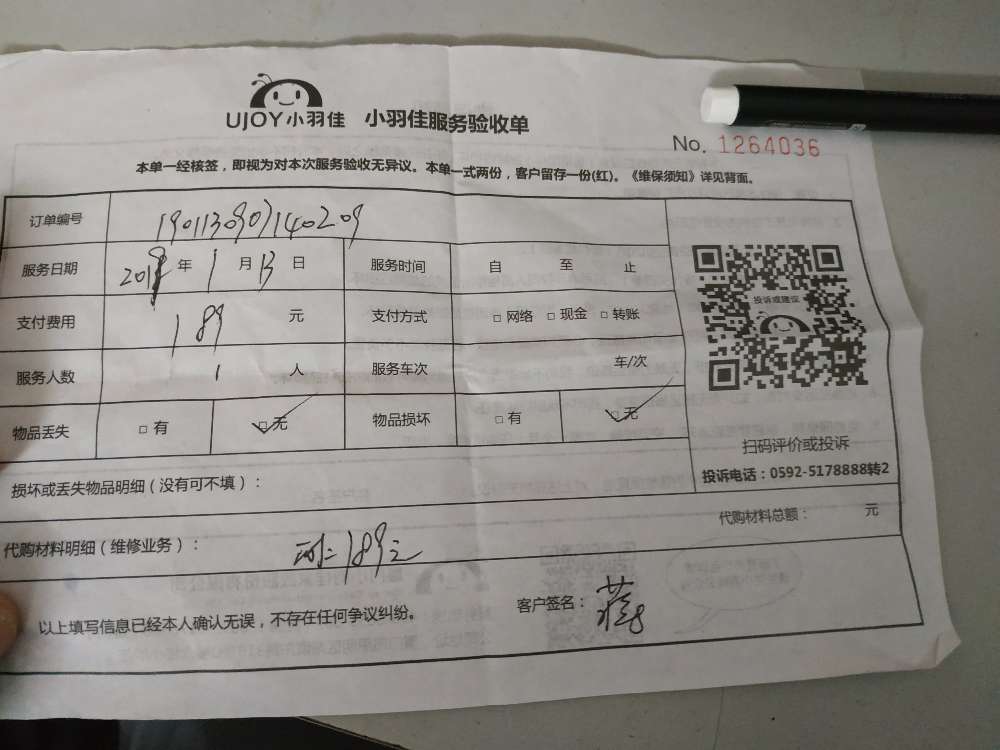 UJOY小羽佳 小羽佳服务验收单
No. 1264036
本单一经核签，即视为对本次服务验收无异议。本单一式两份，客户留存一份(红)。《维保须知》详见背面。
订单编号 1901130907140209
服务日期 2019年1月13日 服务时间 自 至 止
支付费用 189 元 支付方式 □ 网络 □ 现金 □ 转账
服务人数 1 人 服务车次 车/次
物品丢失 □ 有 ☑ 无 物品损坏 □ 有 ☑ 无
投诉或建议
扫码评价或投诉
投诉电话：0592-5178888转2
损坏或丢失物品明细（没有可不填）：
代购材料明细（维修业务）： 189元 代购材料总额： 元
以上填写信息已经本人确认无误，不存在任何争议纠纷。 客户签名：